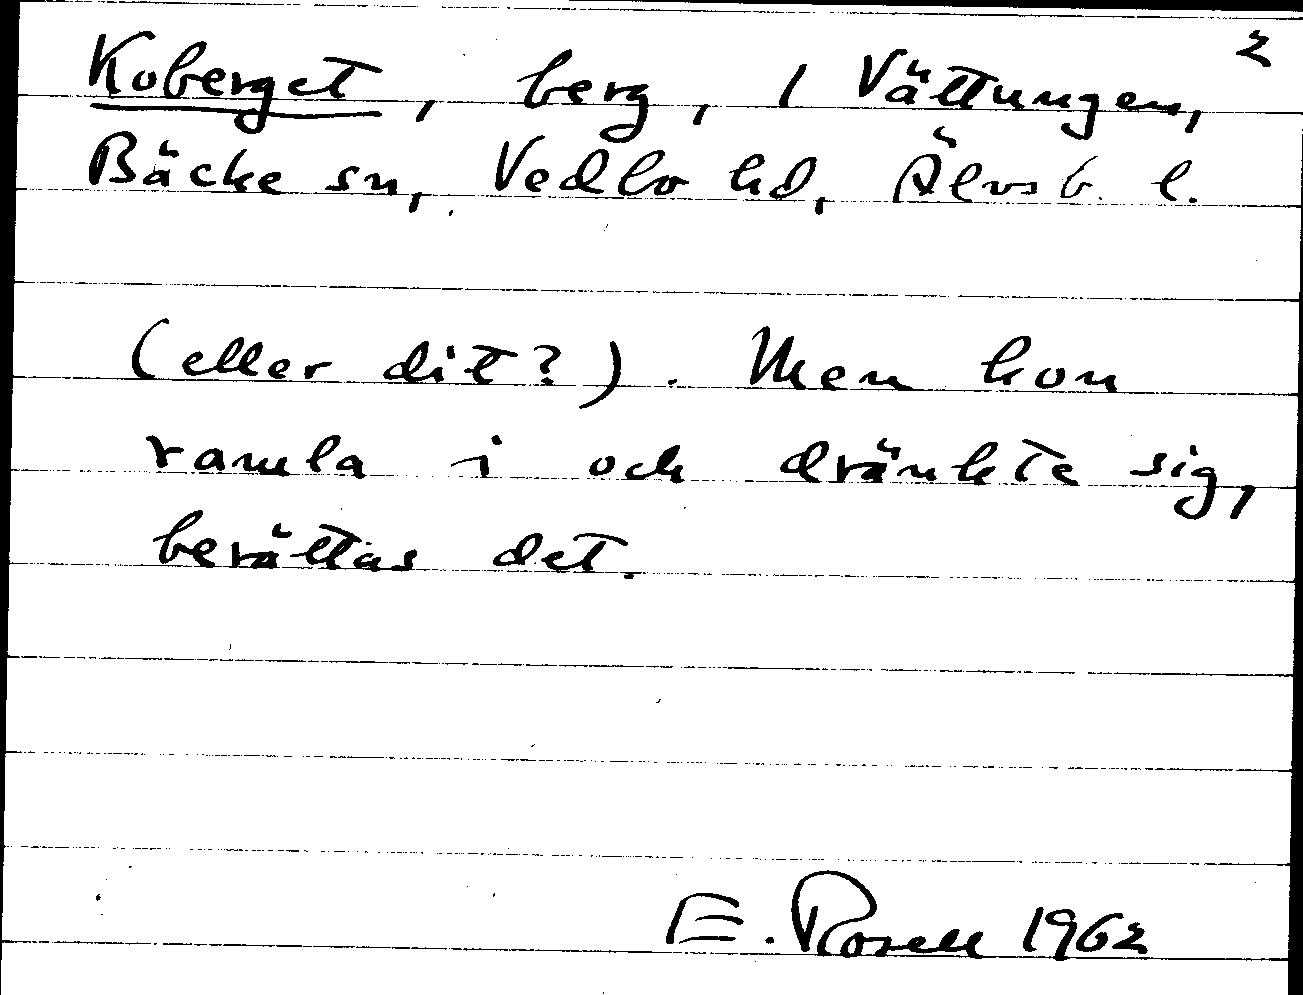 2
Koberget, berg, / Vättungen,
Bäcke sn, Vedbo hd, Älvsb. l.
(eller dit?). Men hon
ramla i och dränkte sig,
berättas det.
E. Rosell 1962